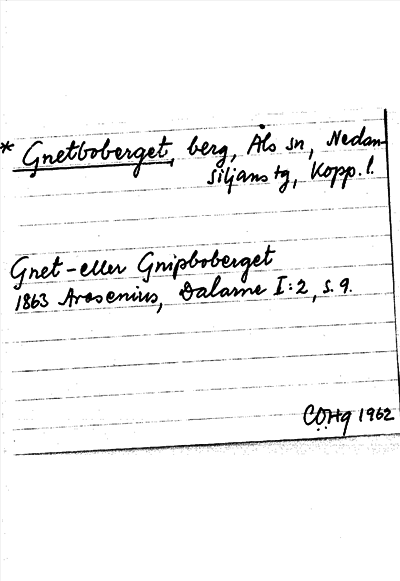 * Gnetboberget, berg, Åls sn, Nedan-
siljans tg, Kopp. l.
Gnet- eller Gnipboberget
1863 Arosenius, Dalarne I:2, s. 9.
COHg 1962